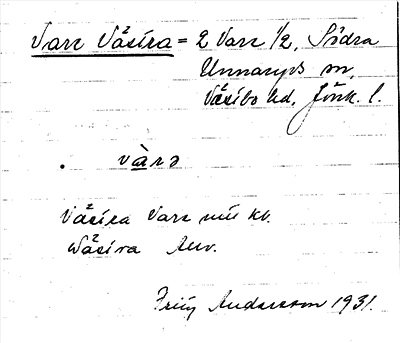 Varr Västra = 2 Varr 1/2, Södra
Unnaryds sn,
Västbo hd, Jönk. l.
. vàrə
Västra Varr nu kv.
Wästra Anv.
Andersson 1931.